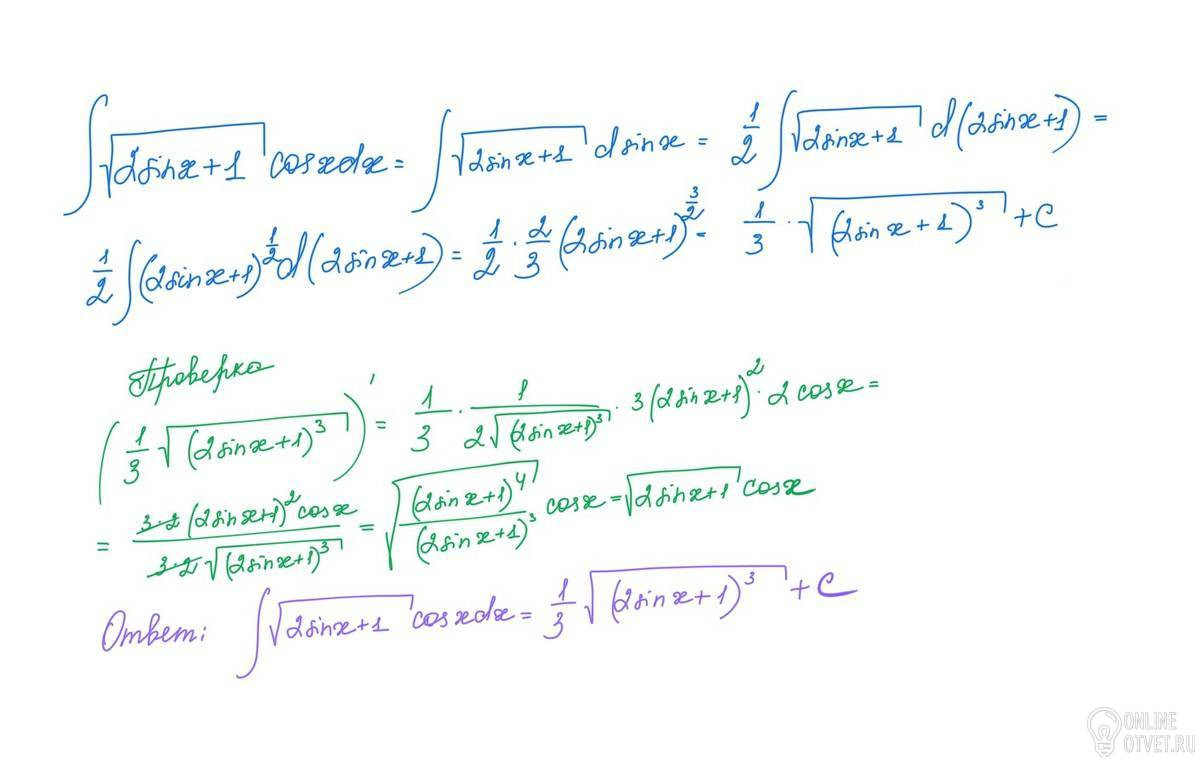 ∫√(2sinx+1) cosxdx = ∫√(2sinx+1) dsinx = 1/2 ∫√(2sinx+1) d(2sinx+1) =
1/2 ∫(2sinx+1)^(1/2) d(2sinx+1) = 1/2 · 2/3 (2sinx+1)^(3/2) = 1/3 · √((2sinx+1)^3) + C
Проверка
(1/3 √((2sinx+1)^3))' = 1/3 · 1/(2√((2sinx+1)^3)) · 3(2sinx+1)^2 · 2cosx =
= (3·2(2sinx+1)^2 cosx)/(3·2√((2sinx+1)^3)) = √((2sinx+1)^4/(2sinx+1)^3) cosx = √(2sinx+1) cosx
Ответ: ∫√(2sinx+1) cosxdx = 1/3 √((2sinx+1)^3) + C
ONLINE
OTVET.RU